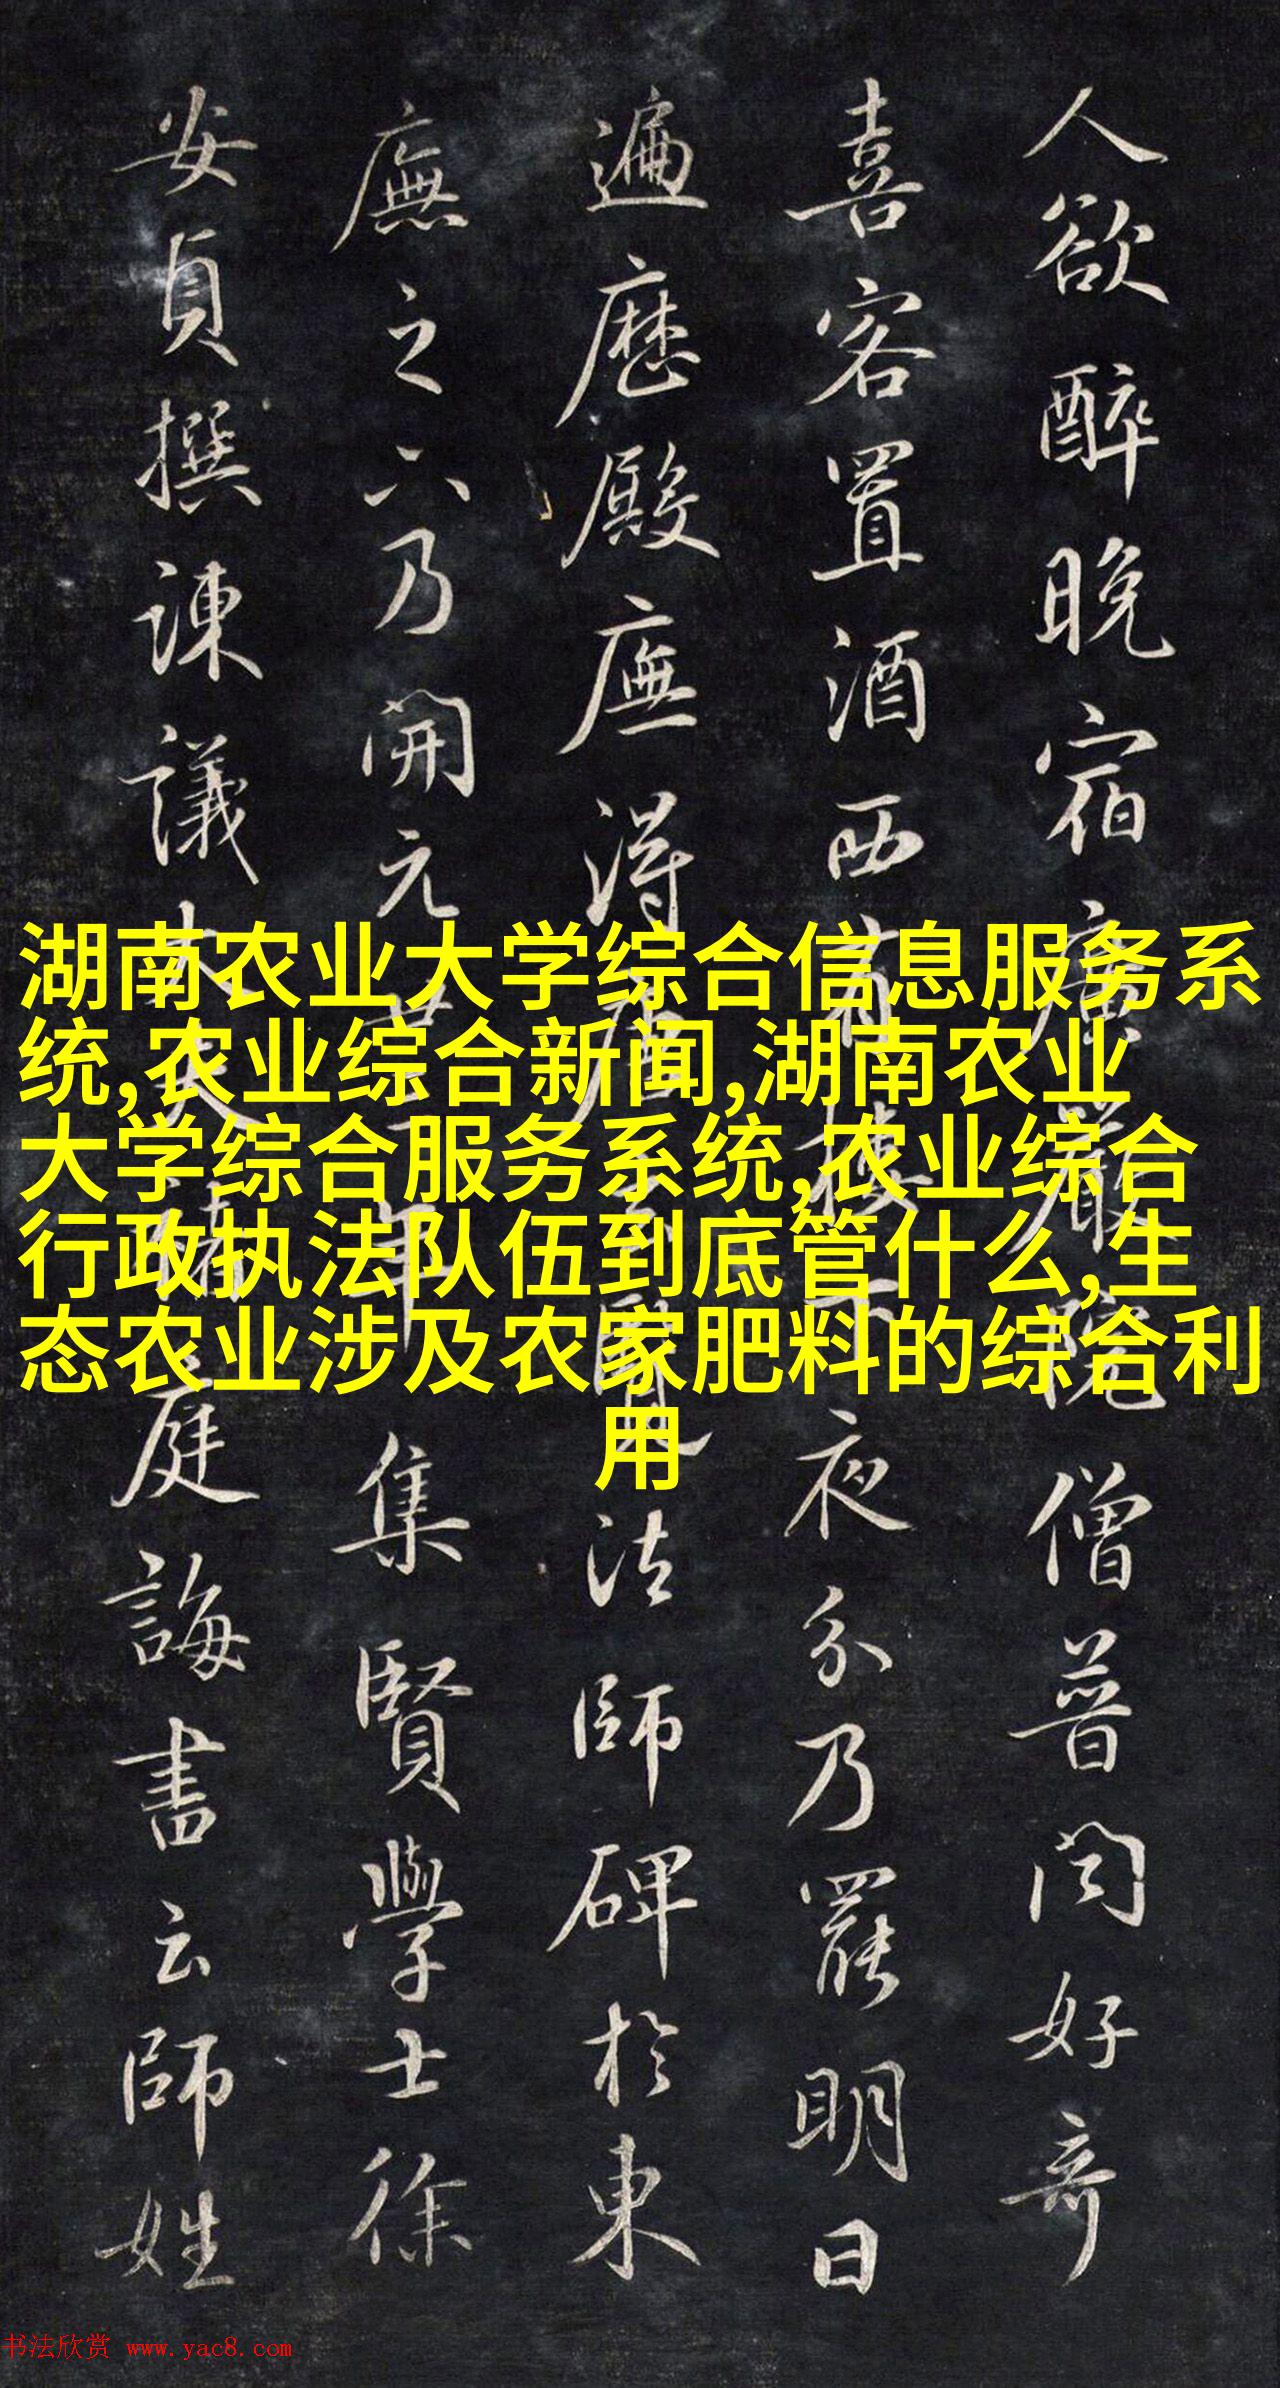 人欲醉晚宿廣嚴院僧普闻好奇
喜客置酒西有樓下夜分乃罷明日
遍歷殿廡得唐至賢法師碑於東
廡之六乃開元廿年集賢學士徐
安貞撰諫議大夫褚庭誨書云師姓
湖南农业大学综合信息服务系
统,农业综合新闻,湖南农业
大学综合服务系统,农业综合
行政执法队伍到底管什么,生
态农业涉及农家肥料的综合利
用
书法欣赏 www.yac8.com